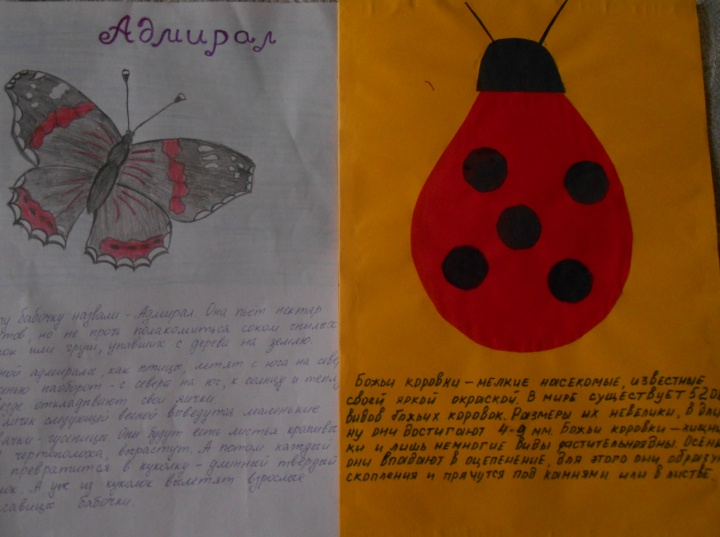 Адмирал
у бабочку назвали - Адмирал. Она пьет нектар
тов, но не прочь полакомиться соком гнилых
ок или груш, упавших с дерева на землю.
ной адмиралы, как птицы, летят с юга на севе
нью наоборот - с севера на юг, к солнцу и теплу
откладывают свои яички
яичек следующей весной выведутся маленькие
гусеницы. Они будут есть листья крапивы
чертополоха, вырастут. А потом каждый
превратится в куколку - длинный твёрдый
ок. А уж из куколок вылетят взрослые
савицы бабочки.
Божьи коровки - мелкие насекомые, известные
своей яркой окраской. В мире существует 520
видов божьих коровок. Размеры их невелики, в дли
ну они достигают 4-9 мм. Божьи коровки - хищни
ки и лишь немногие виды растительноядны. Осень
они впадают в оцепенение, для этого они образую
скопления и прячутся под камнями или в листве.